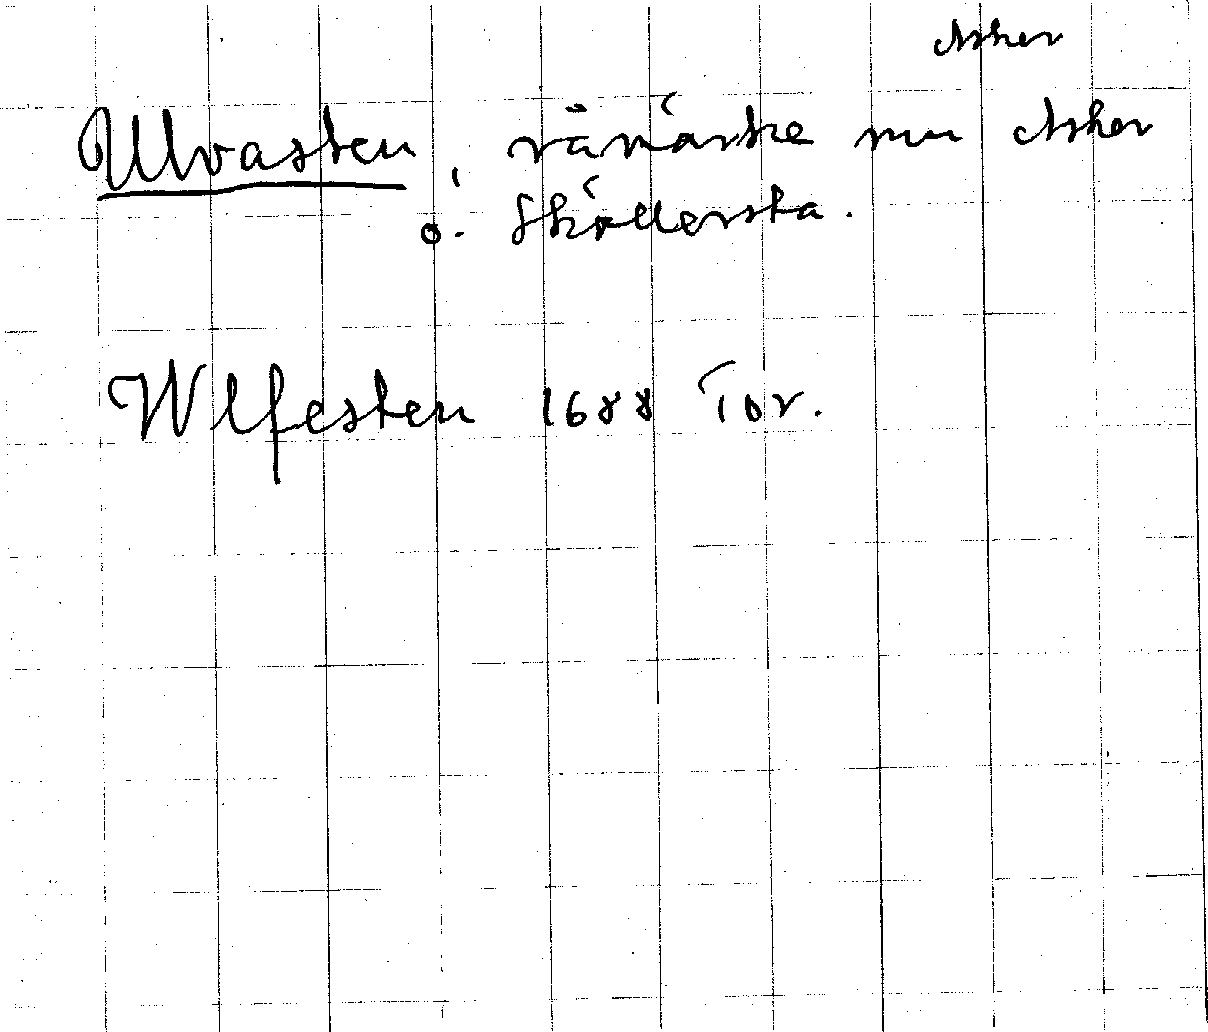 Asker
Ulvasten, råmärke mu Asker
o. Sköllersta.
Wlfesten 1688 Tor.